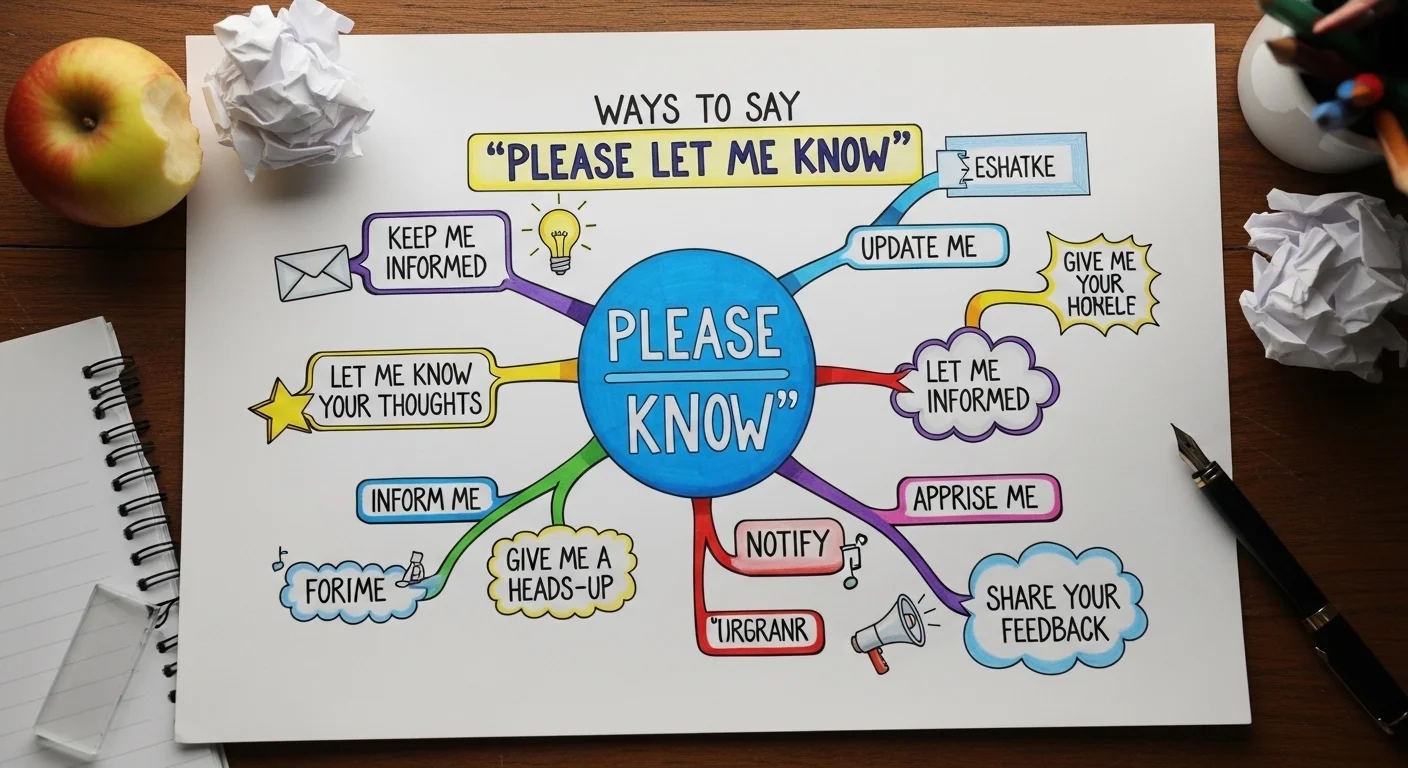 WAYS TO SAY
"PLEASE LET ME KNOW"
ESHATKE
KEEP ME
INFORMED
UPDATE ME
GIVE ME
YOUR
PLEASE
KNOW"
LET ME KNOW
YOUR THOUGHTS
LET ME
INFORMED
INFORM ME
APPRISE ME
GIVE ME A
HEADS-UP
NOTIFY
FORIME
SHARE YOUR
FEEDBACK